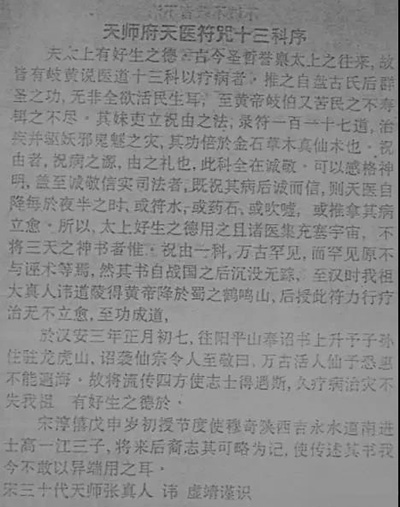 天师府天医符咒十三科序
夫太上有好生之德。古今圣哲誉崇太上之往来,故
皆有岐黄说医道十三科以疗病者。推之自盘古氏后群
圣之功,无非全欲活民生耳,至黄帝岐伯又苦民之不寿
辑之不尽。其妹吏立祝由之法,录符一百一十七道,治
疾并驱妖邪鬼魅之灾,其功倍於金石草木真仙术也。祝
由者,祝病之源,由之礼也,此科全在诚敬。可以感格神
明,盖至诚敬信实司法者,既祝其病后诚而信,则天医自
降每於夜半之时,或符水,或药石、或吹嘘,或推拿其病
立愈。所以、太上好生之德用之且诸医集充塞宇宙,不
将三天之神书者惟。祝由一科,万古罕见,而罕见原不
与诬术等焉,然其书自战国之后沉没无踪,至汉时我祖
大真人讳道陵得黄帝降於蜀之鹤鸣山,后授此符力行疗
治无不立愈,至功成道,
於汉安三年正月初七,往阳平山奉诏书上升予子孙
住驻龙虎山,诏袭仙宗令人至敬曰,万古活人仙予恐惠
不能遍海。故将流传四方使志士得遇斯,久疗病治灾不
失我祖 有好生之德於。
宋淳熹戊申岁初授节度使穆奇陕西吉永水道南进
士高一江三子,将来后裔志其可略为记,使传述其书我
今不敢以异端用之耳。
宋三十代天师张真人 讳 虚靖谨识